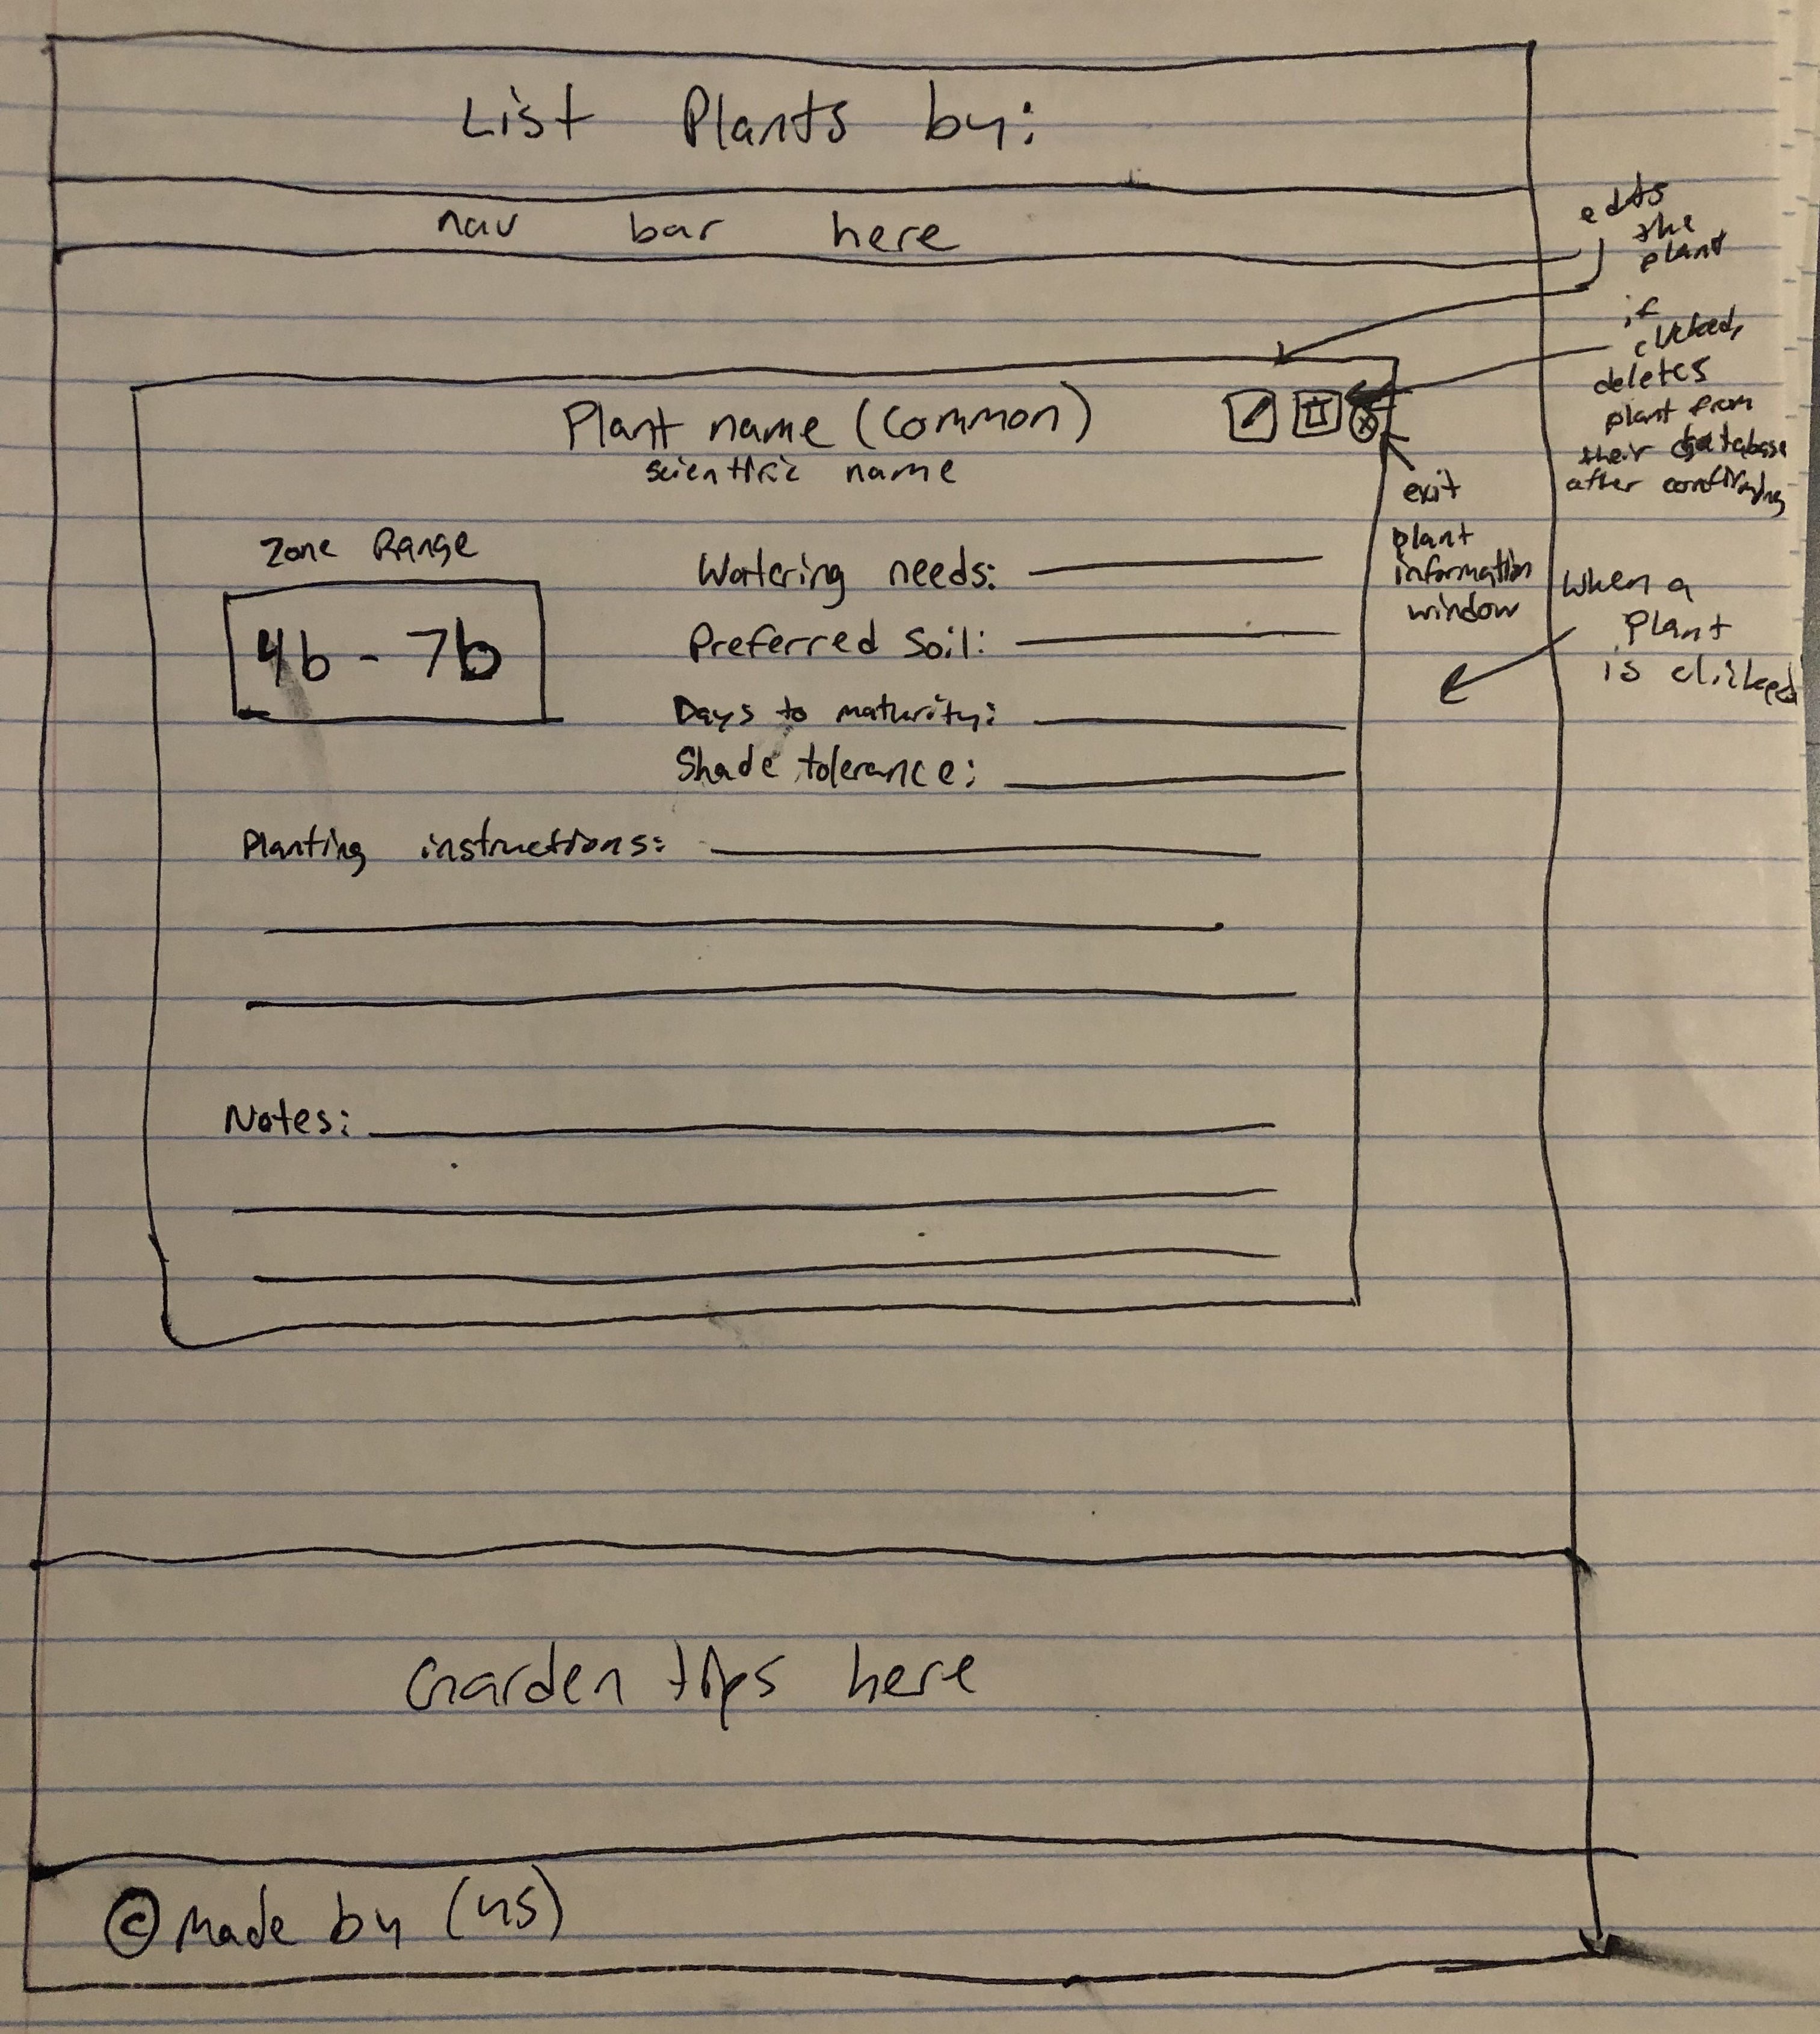 List Plants by:
nav bar here
edits
the
plant
if
clicked,
deletes
plant from
their database
after confirming
Plant name (common)
scientific name
exit
plant
information
window
when a
plant
is clicked
Zone Range
4b - 7b
Watering needs:
Preferred Soil:
Days to maturity:
Shade tolerance:
Planting instructions:
Notes:
Garden tips here
© Made by (us)